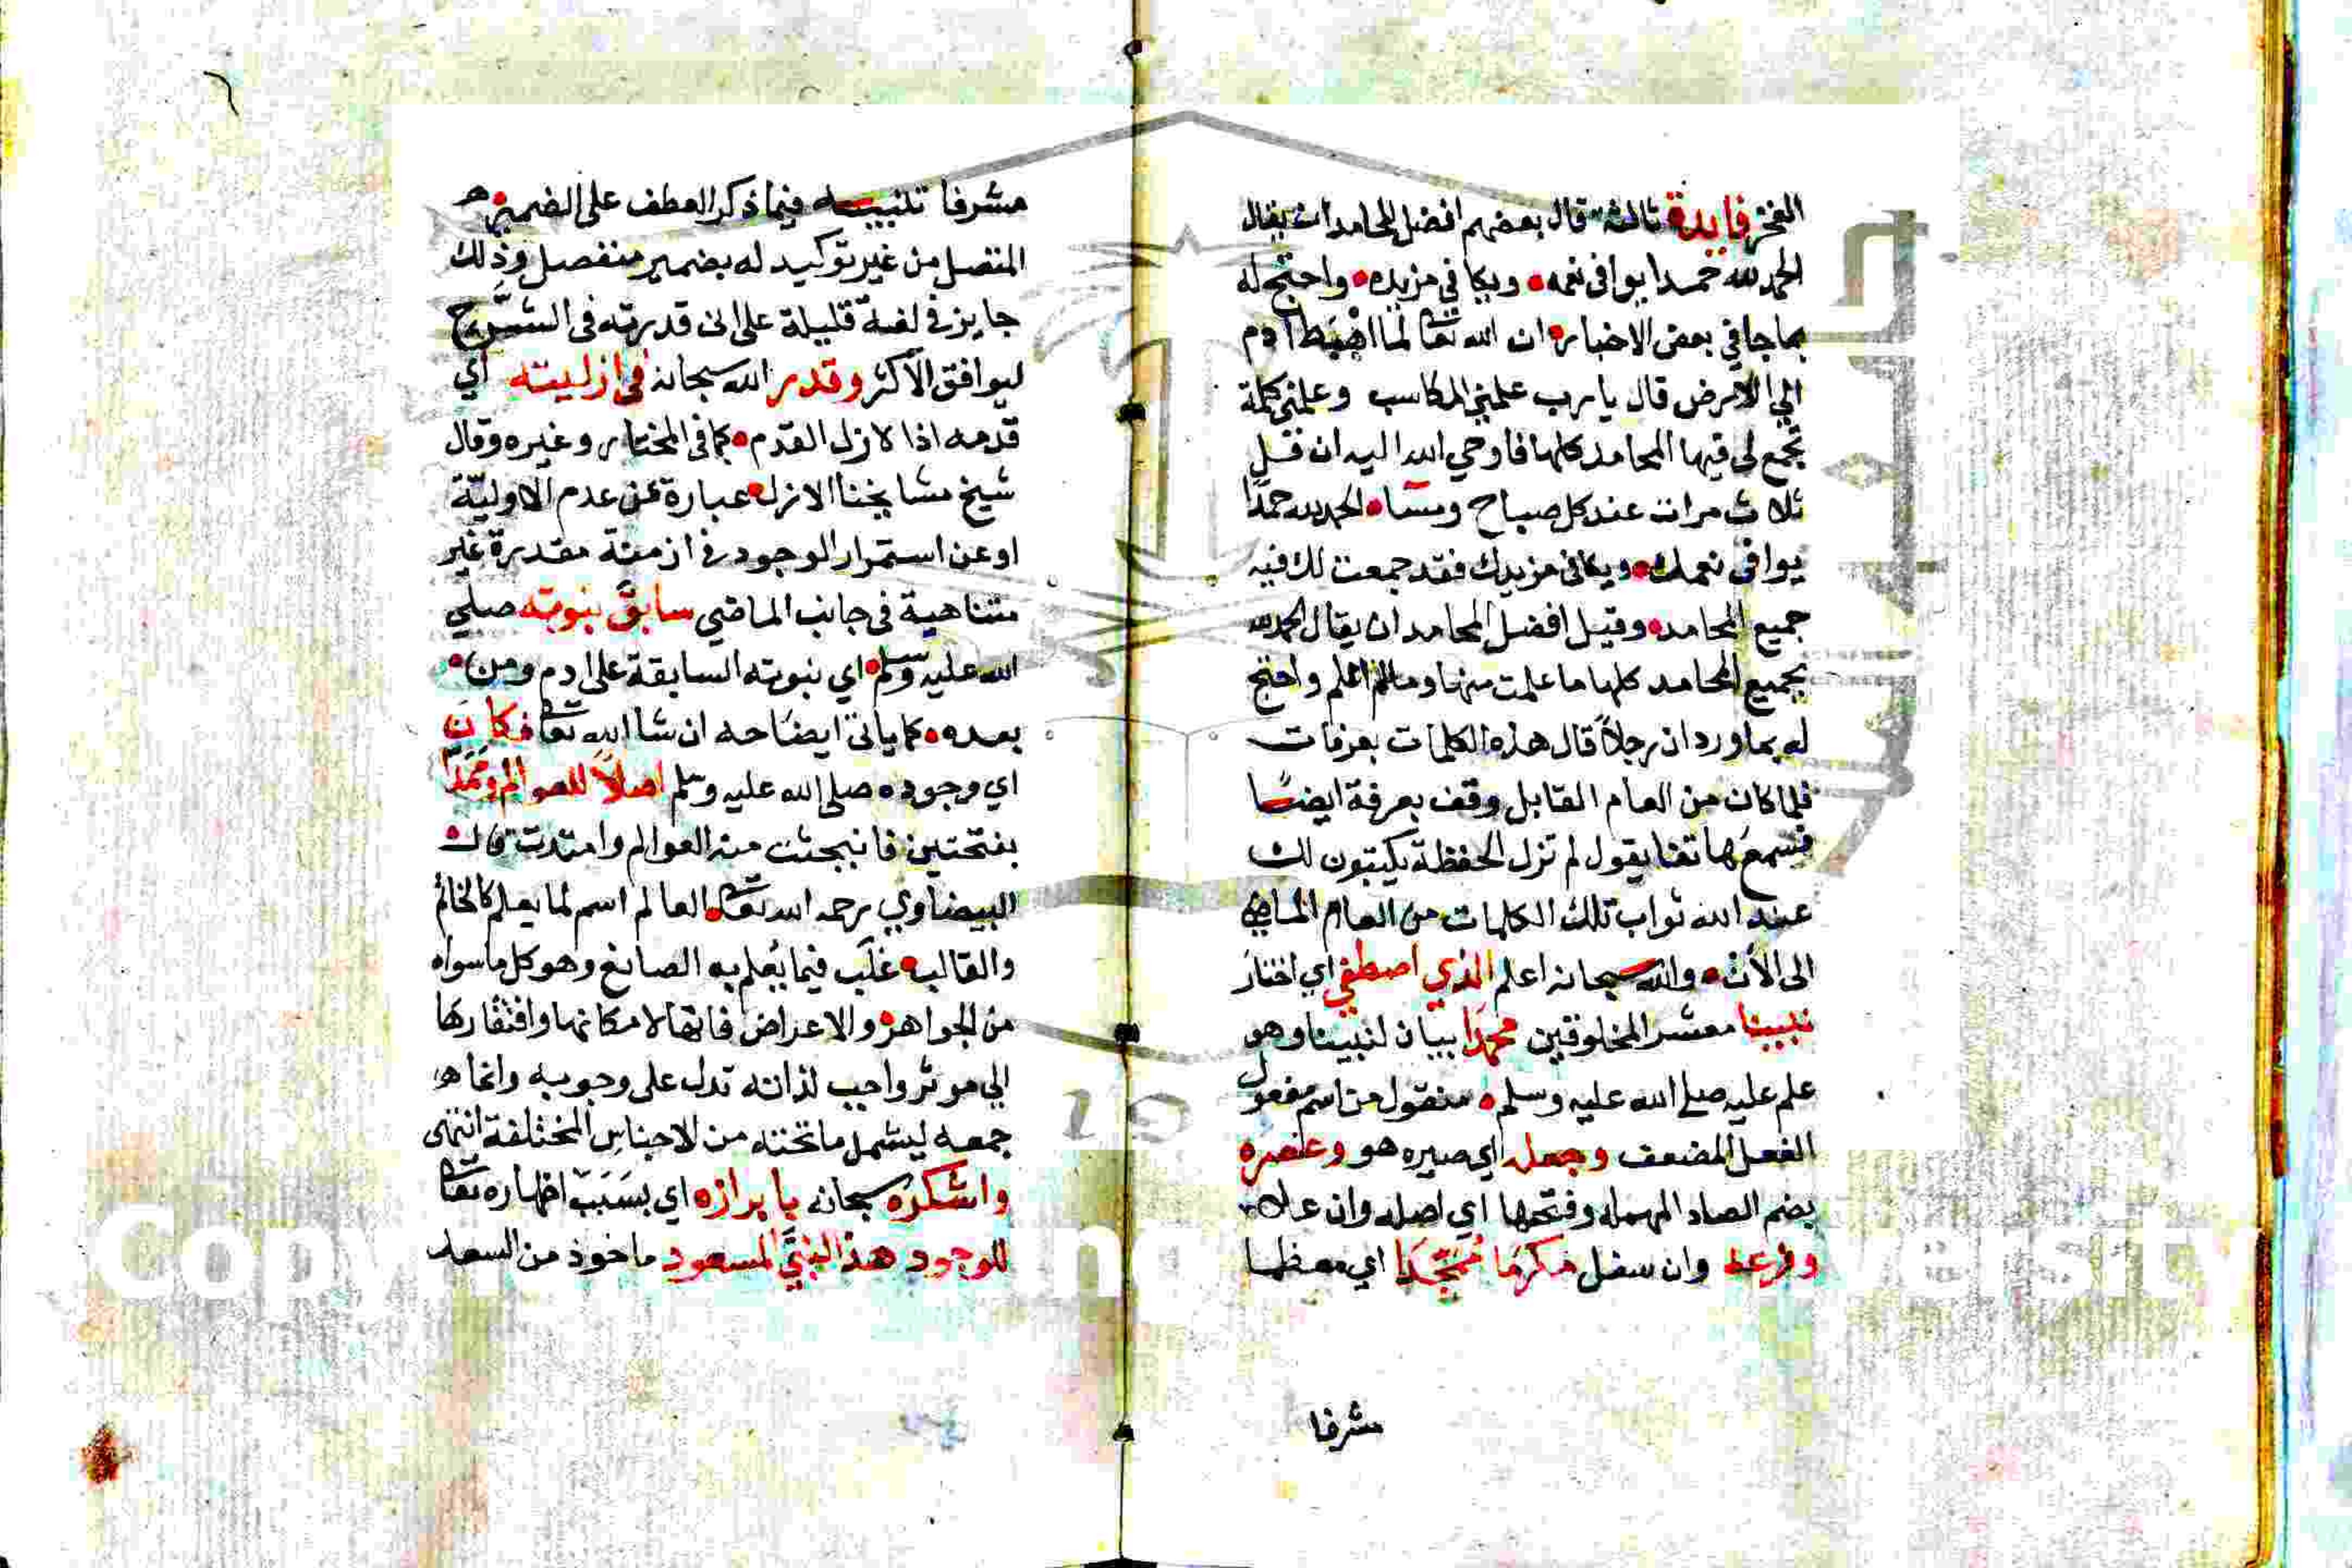 الفخر فايدة ثالثة قال بعضهم افضل المحامد ان يقال
الحمد لله حمدا يوافى نعمه ويكافي مزيده واحتج له
بما جا في بعض الاخبار ان الله تعا لما اهبط ادم
الي الارض قال يا رب علمني المكاسب وعلمني كلمة
تجمع لي فيها المحامد كلها فاوحي الله اليه ان قل
ثلاث مرات عند كل صباح ومسا الحمد لله حمدًا
يوافى نعمك ويكافى مزيدك فقد جمعت لك فيه
جميع المحامد وقيل افضل المحامد ان يقال الحمد لله
بجميع المحامد كلها ما علمت منها وما لم اعلم واحتج
له بما ورد ان رجلاً قال هذه الكلمات بعرفات
فلما كان من العام القابل وقف بعرفة ايضًا
فسمع هاتفا يقول لم تزل الحفظة يكتبون لك
عند الله ثواب تلك الكلمات من العام الماضي
الى الأن والله سبحانه اعلم الذي اصطفي اي اختار
نبينا معشر المخلوقين محمدًا بيان لنبينا وهو
علم عليه صلى الله عليه وسلم منقول من اسم مفعول
الفعل المضعف وجعله اي صيره هو وعنصره
بضم الصاد المهمله وفتحها اي اصله وان علا
وفرعه وان سفل مكرمًا ممجدًا اي معظما
مشرفا
مشرفا تنبيه فيما ذكر العطف على الضمير
المتصل من غير توكيد له بضمير منفصل وذلك
جايز في لغة قليلة على اني قدرته فى الشرح
ليوافق الاكثر وقدر الله سبحانه في ازليته اي
قدمه اذا لازل القدم كما فى المختار وغيره وقال
شيخ مشايخنا الازل عبارة عن عدم الاوليّة
او عن استمرار الوجود في ازمنة مقدرة غير
متناهية فى جانب الماضي سابق نبوته صلي
الله عليه وسلم اي نبوته السابقة على ادم ومن
بعده كما ياتى ايضاحه ان شا الله تعا فكان
اي وجوده صلى الله عليه وسلم اصلاً للعوالم ومَمَدًا
بفتحتين فانبجثت منه العوالم وامتدت قال
البيضاوي رحمه الله تعا العالم اسم لما يعلم كالخاتم
والقالب غلّب فيما يُعلم به الصانع وهو كل ما سواه
من الجواهر والاعراض فانها لامكانها وافتقارها
الي موثر واجب لذاته تدل على وجوبه وانما
جمعه ليشمل ما تحته من الاجناس المختلفة انتهى
واشكره سبحانه بابرازه اي بسبب اظهاره تعا
للوجود هذا النبي المسعود ماخوذ من السعد